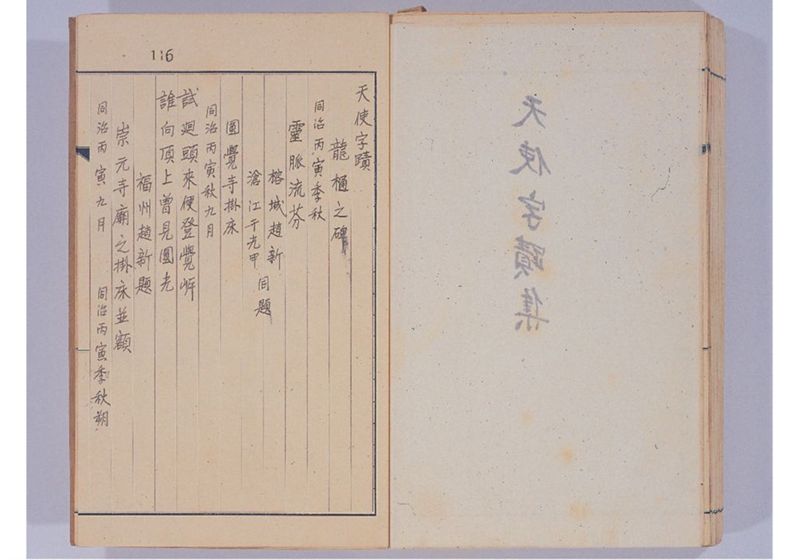 天使字蹟集
116
天使字蹟
龍樋之碑
同治丙寅季秋
靈脈流芬
榕城趙新
滄江于光甲 同題
圓覺寺掛床
同治丙寅秋九月
試迴頭來便登覺岸
誰向頂上曾見圓光
福州趙新題
崇元寺廟之掛床並額
同治丙寅九月 同治丙寅季秋朔